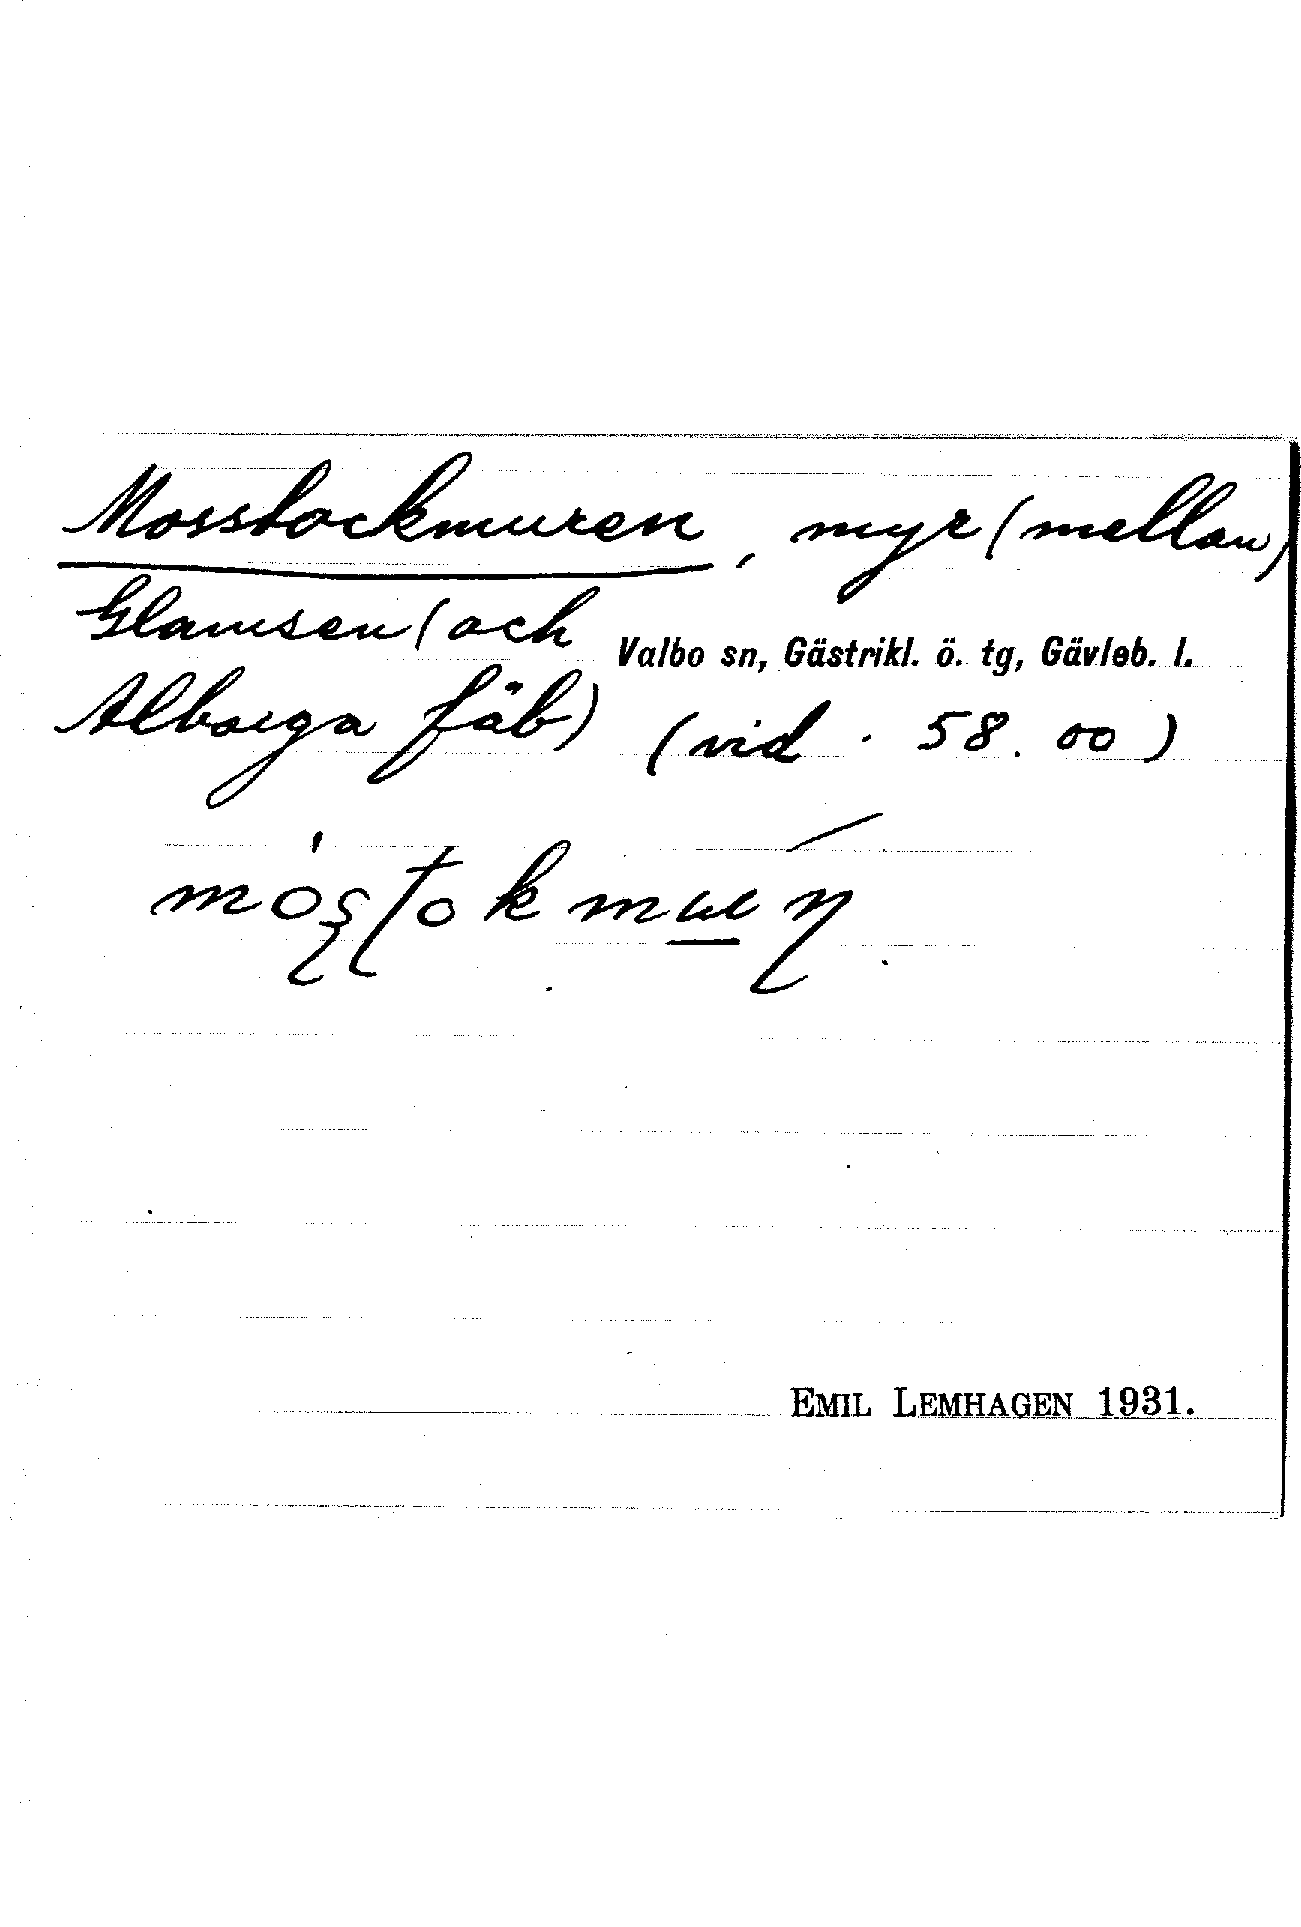 Mosstockmuren, myr (mellan)
Glamsen (och
Valbo sn, Gästrikl. ö. tg, Gävleb. l.
Alborga fäb) (vid · 58.00)
EMIL LEMHAGEN 1931.